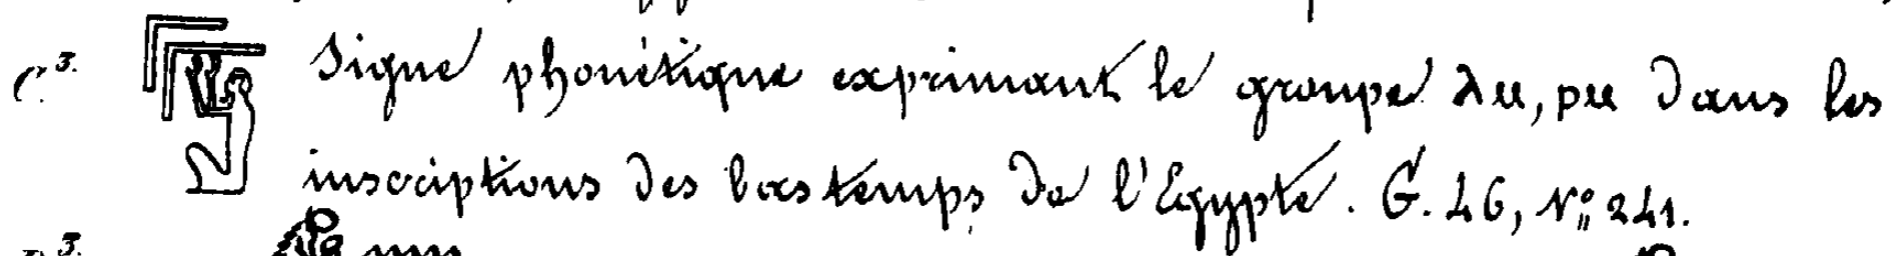 C³. Signe phonétique exprimant le groupe ⲗⲙ, ⲣⲙ dans les
inscriptions des bas temps de l'Egypte. G. 46, N° 241.